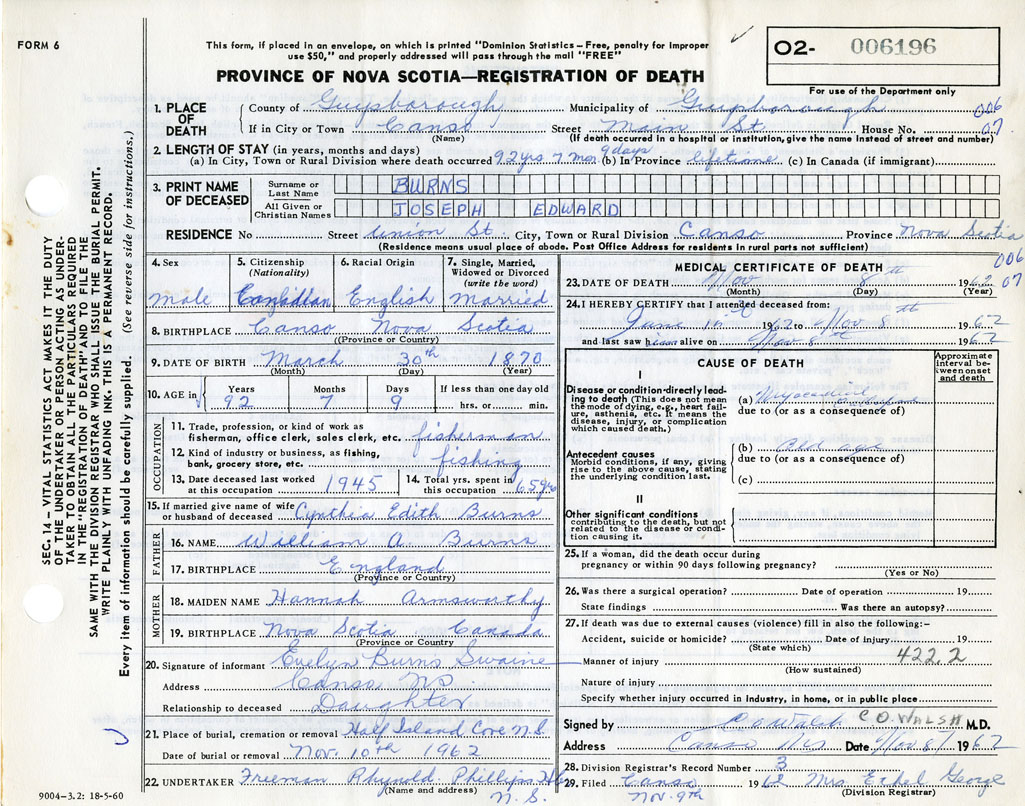 FORM 6
This form, if placed in an envelope, on which is printed "Dominion Statistics – Free, penalty for improper
use $50," and properly addressed will pass through the mail "FREE"
O2- 006196
For use of the Department only
PROVINCE OF NOVA SCOTIA—REGISTRATION OF DEATH
SEC. 14 – VITAL STATISTICS ACT MAKES IT THE DUTY
OF THE UNDERTAKER OR PERSON ACTING AS UNDER-
TAKER TO OBTAIN ALL THE PARTICULARS REQUIRED
IN THE "REGISTRATION OF DEATH" AND TO FILE THE
SAME WITH THE DIVISION REGISTRAR WHO SHALL ISSUE THE BURIAL PERMIT.
WRITE PLAINLY WITH UNFADING INK. THIS IS A PERMANENT RECORD.
Every item of information should be carefully supplied. (See reverse side for instructions.)
1. PLACE OF DEATH
County of Guysborough Municipality of Guysborough 006
If in City or Town Canso Street Main St House No. 07
(Name) (If death occurred in hospital or institution, give the name instead of street and number)
2. LENGTH OF STAY (in years, months and days)
(a) In City, Town or Rural Division where death occurred 92 yrs 7 mon 9 days (b) In Province lifetime (c) In Canada (if immigrant)
3. PRINT NAME OF DECEASED
Surname or Last Name BURNS
All Given or Christian Names JOSEPH EDWARD
RESIDENCE No Street Union St City, Town or Rural Division Canso Province Nova Scotia
(Residence means usual place of abode. Post Office Address for residents in rural parts not sufficient)
006
07
4. Sex
male
5. Citizenship (Nationality)
Canadian
6. Racial Origin
English
7. Single, Married, Widowed or Divorced (write the word)
married
8. BIRTHPLACE Canso Nova Scotia
(Province or Country)
9. DATE OF BIRTH March 30th 1870
(Month) (Day) (Year)
10. AGE in
Years 92
Months 7
Days 9
If less than one day old
hrs. or min.
OCCUPATION
11. Trade, profession, or kind of work as
fisherman, office clerk, sales clerk, etc. fisherman
12. Kind of industry or business, as fishing,
bank, grocery store, etc. fishing
13. Date deceased last worked
at this occupation 1945
14. Total yrs. spent in
this occupation 65 yrs
15. If married give name of wife
or husband of deceased Cynthia Edith Burns
FATHER
16. NAME William A. Burns
17. BIRTHPLACE England
(Province or Country)
MOTHER
18. MAIDEN NAME Hannah Armsworthy
19. BIRTHPLACE Nova Scotia Canada
(Province or Country)
20. Signature of informant Evelyn Burns Swaine
Address Canso NS
Relationship to deceased Daughter
21. Place of burial, cremation or removal Half Island Cove N.S.
Date of burial or removal Nov. 10th 1962
22. UNDERTAKER Freeman Phillips
(Name and address) N.S.
9004–3.2: 18-5-60
MEDICAL CERTIFICATE OF DEATH
23. DATE OF DEATH Nov 8th 1962
(Month) (Day) (Year)
24. I HEREBY CERTIFY that I attended deceased from:
June 1st 1962 to Nov 8th 1962
and last saw him alive on Nov 8th 1962
CAUSE OF DEATH
Approximate interval between onset and death
I
Disease or condition directly lead-
ing to death (This does not mean
the mode of dying, e.g., heart fail-
ure, asthenia, etc. It means the
disease, injury, or complication
which caused death.)
(a) Myocardial
due to (or as a consequence of)
Antecedent causes
Morbid conditions, if any, giving
rise to the above cause, stating
the underlying condition last.
(b) Old age
due to (or as a consequence of)
(c)
II
Other significant conditions
contributing to the death, but not
related to the disease or condi-
tion causing it.
25. If a woman, did the death occur during
pregnancy or within 90 days following pregnancy?
(Yes or No)
26. Was there a surgical operation? Date of operation 19
State findings Was there an autopsy?
27. If death was due to external causes (violence) fill in also the following:–
Accident, suicide or homicide? Date of injury 19
(State which) 422.2
Manner of injury
(How sustained)
Nature of injury
Specify whether injury occurred in industry, in home, or in public place
Signed by C O Walsh C O. WALSH M.D.
Address Canso NS Date Nov 8 1962
28. Division Registrar's Record Number 3
29. Filed Canso 1962 Mrs. Ethel George
Nov. 9th (Division Registrar)